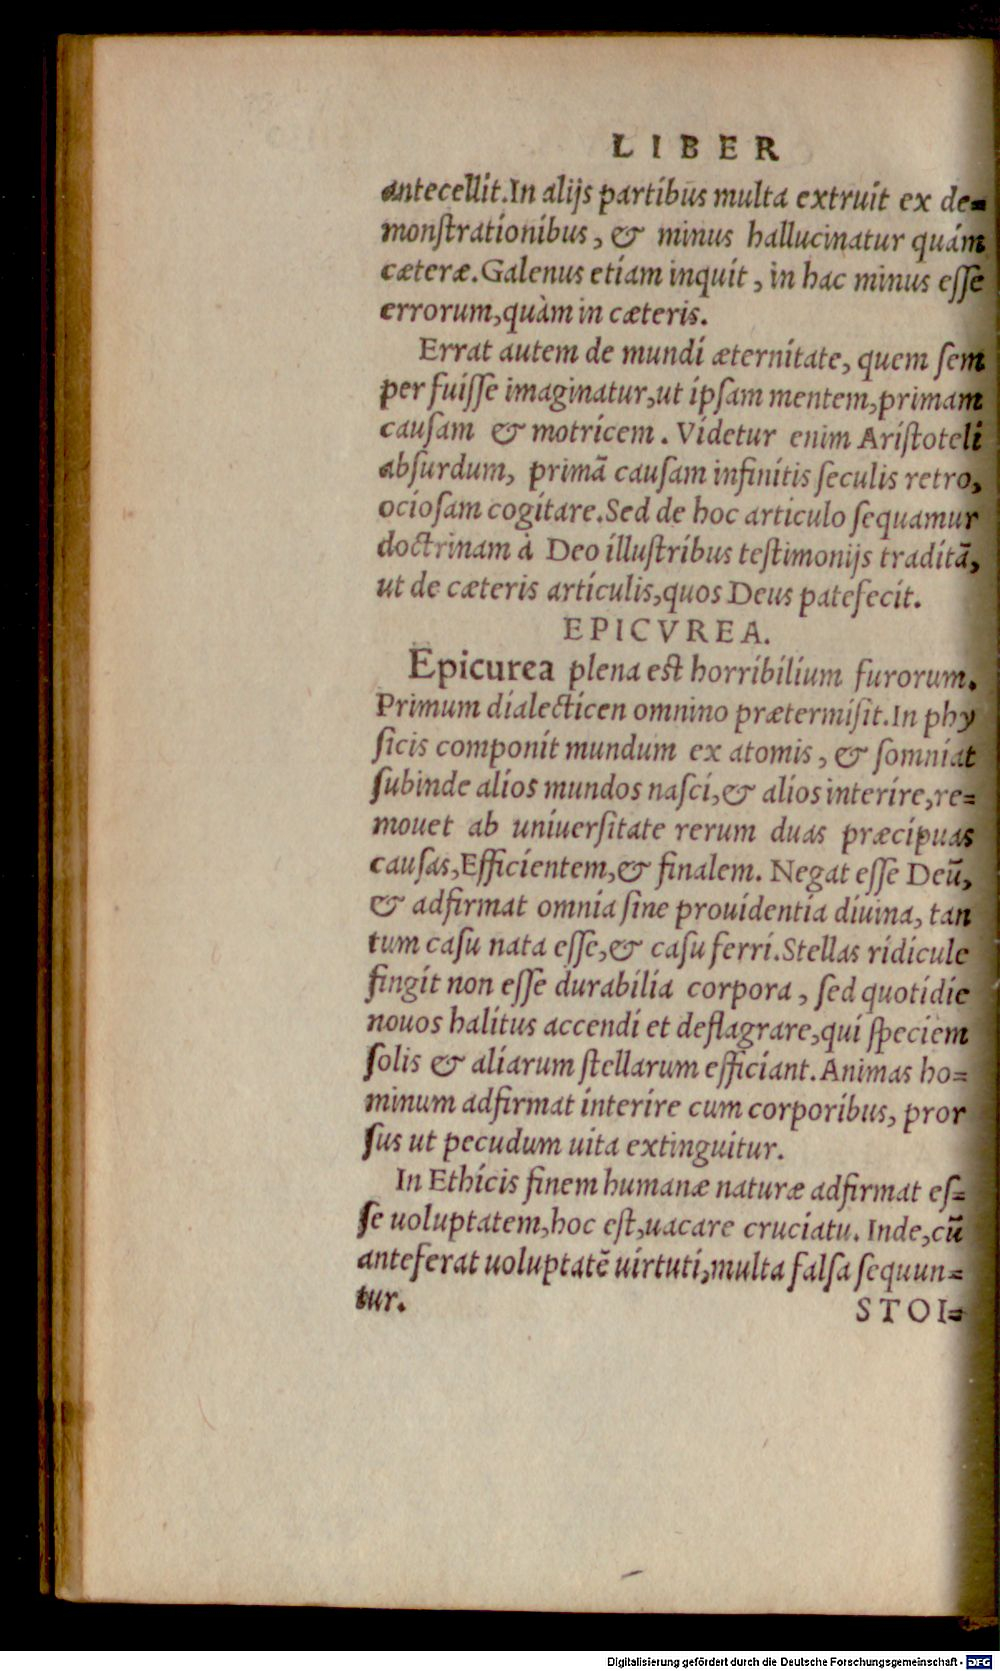 LIBER
antecellit. In alijs partibus multa extruit ex de=
monſtrationibus, & minus hallucinatur quám
cæteræ. Galenus etiam inquit, in hac minus eſſe
errorum, quàm in cæteris.
Errat autem de mundi æternitate, quem ſem
per fuiſſe imaginatur, ut ipſam mentem, primam
cauſam & motricem. Videtur enim Ariſtoteli
abſurdum, primã cauſam infinitis ſeculis retro,
ocioſam cogitare. Sed de hoc articulo ſequamur
doctrinam à Deo illuſtribus teſtimonijs traditã,
ut de cæteris articulis, quos Deus patefecit.
EPICVREA.
Epicurea plena est horribilium furorum.
Primum dialecticen omnino prætermiſit. In phy
ſicis componit mundum ex atomis, & ſomniat
ſubinde alios mundos naſci, & alios interire, re=
mouet ab uniuerſitate rerum duas præcipuas
cauſas, Efficientem, & finalem. Negat eſſe Deũ,
& adfirmat omnia ſine prouidentia diuina, tan
tum caſu nata eſſe, & caſu ferri. Stellas ridicule
fingit non eſſe durabilia corpora, ſed quotidie
nouos halitus accendi et deflagrare, qui ſpeciem
ſolis & aliarum ſtellarum efficiant. Animas ho=
minum adfirmat interire cum corporibus, pror
ſus ut pecudum uita extinguitur.
In Ethicis finem humanæ naturæ adfirmat eſ=
ſe uoluptatem, hoc eſt, uacare cruciatu. Inde, cũ
anteferat uoluptatẽ uirtuti, multa falſa ſequun=
tur.
STOI=
Digitalisierung gefördert durch die Deutsche Forschungsgemeinschaft - DFG